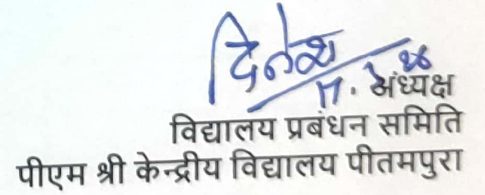 दिनेश
अंध्यक्ष
विद्यालय प्रबंधन समिति
पीएम श्री केन्द्रीय विद्यालय पीतमपुरा